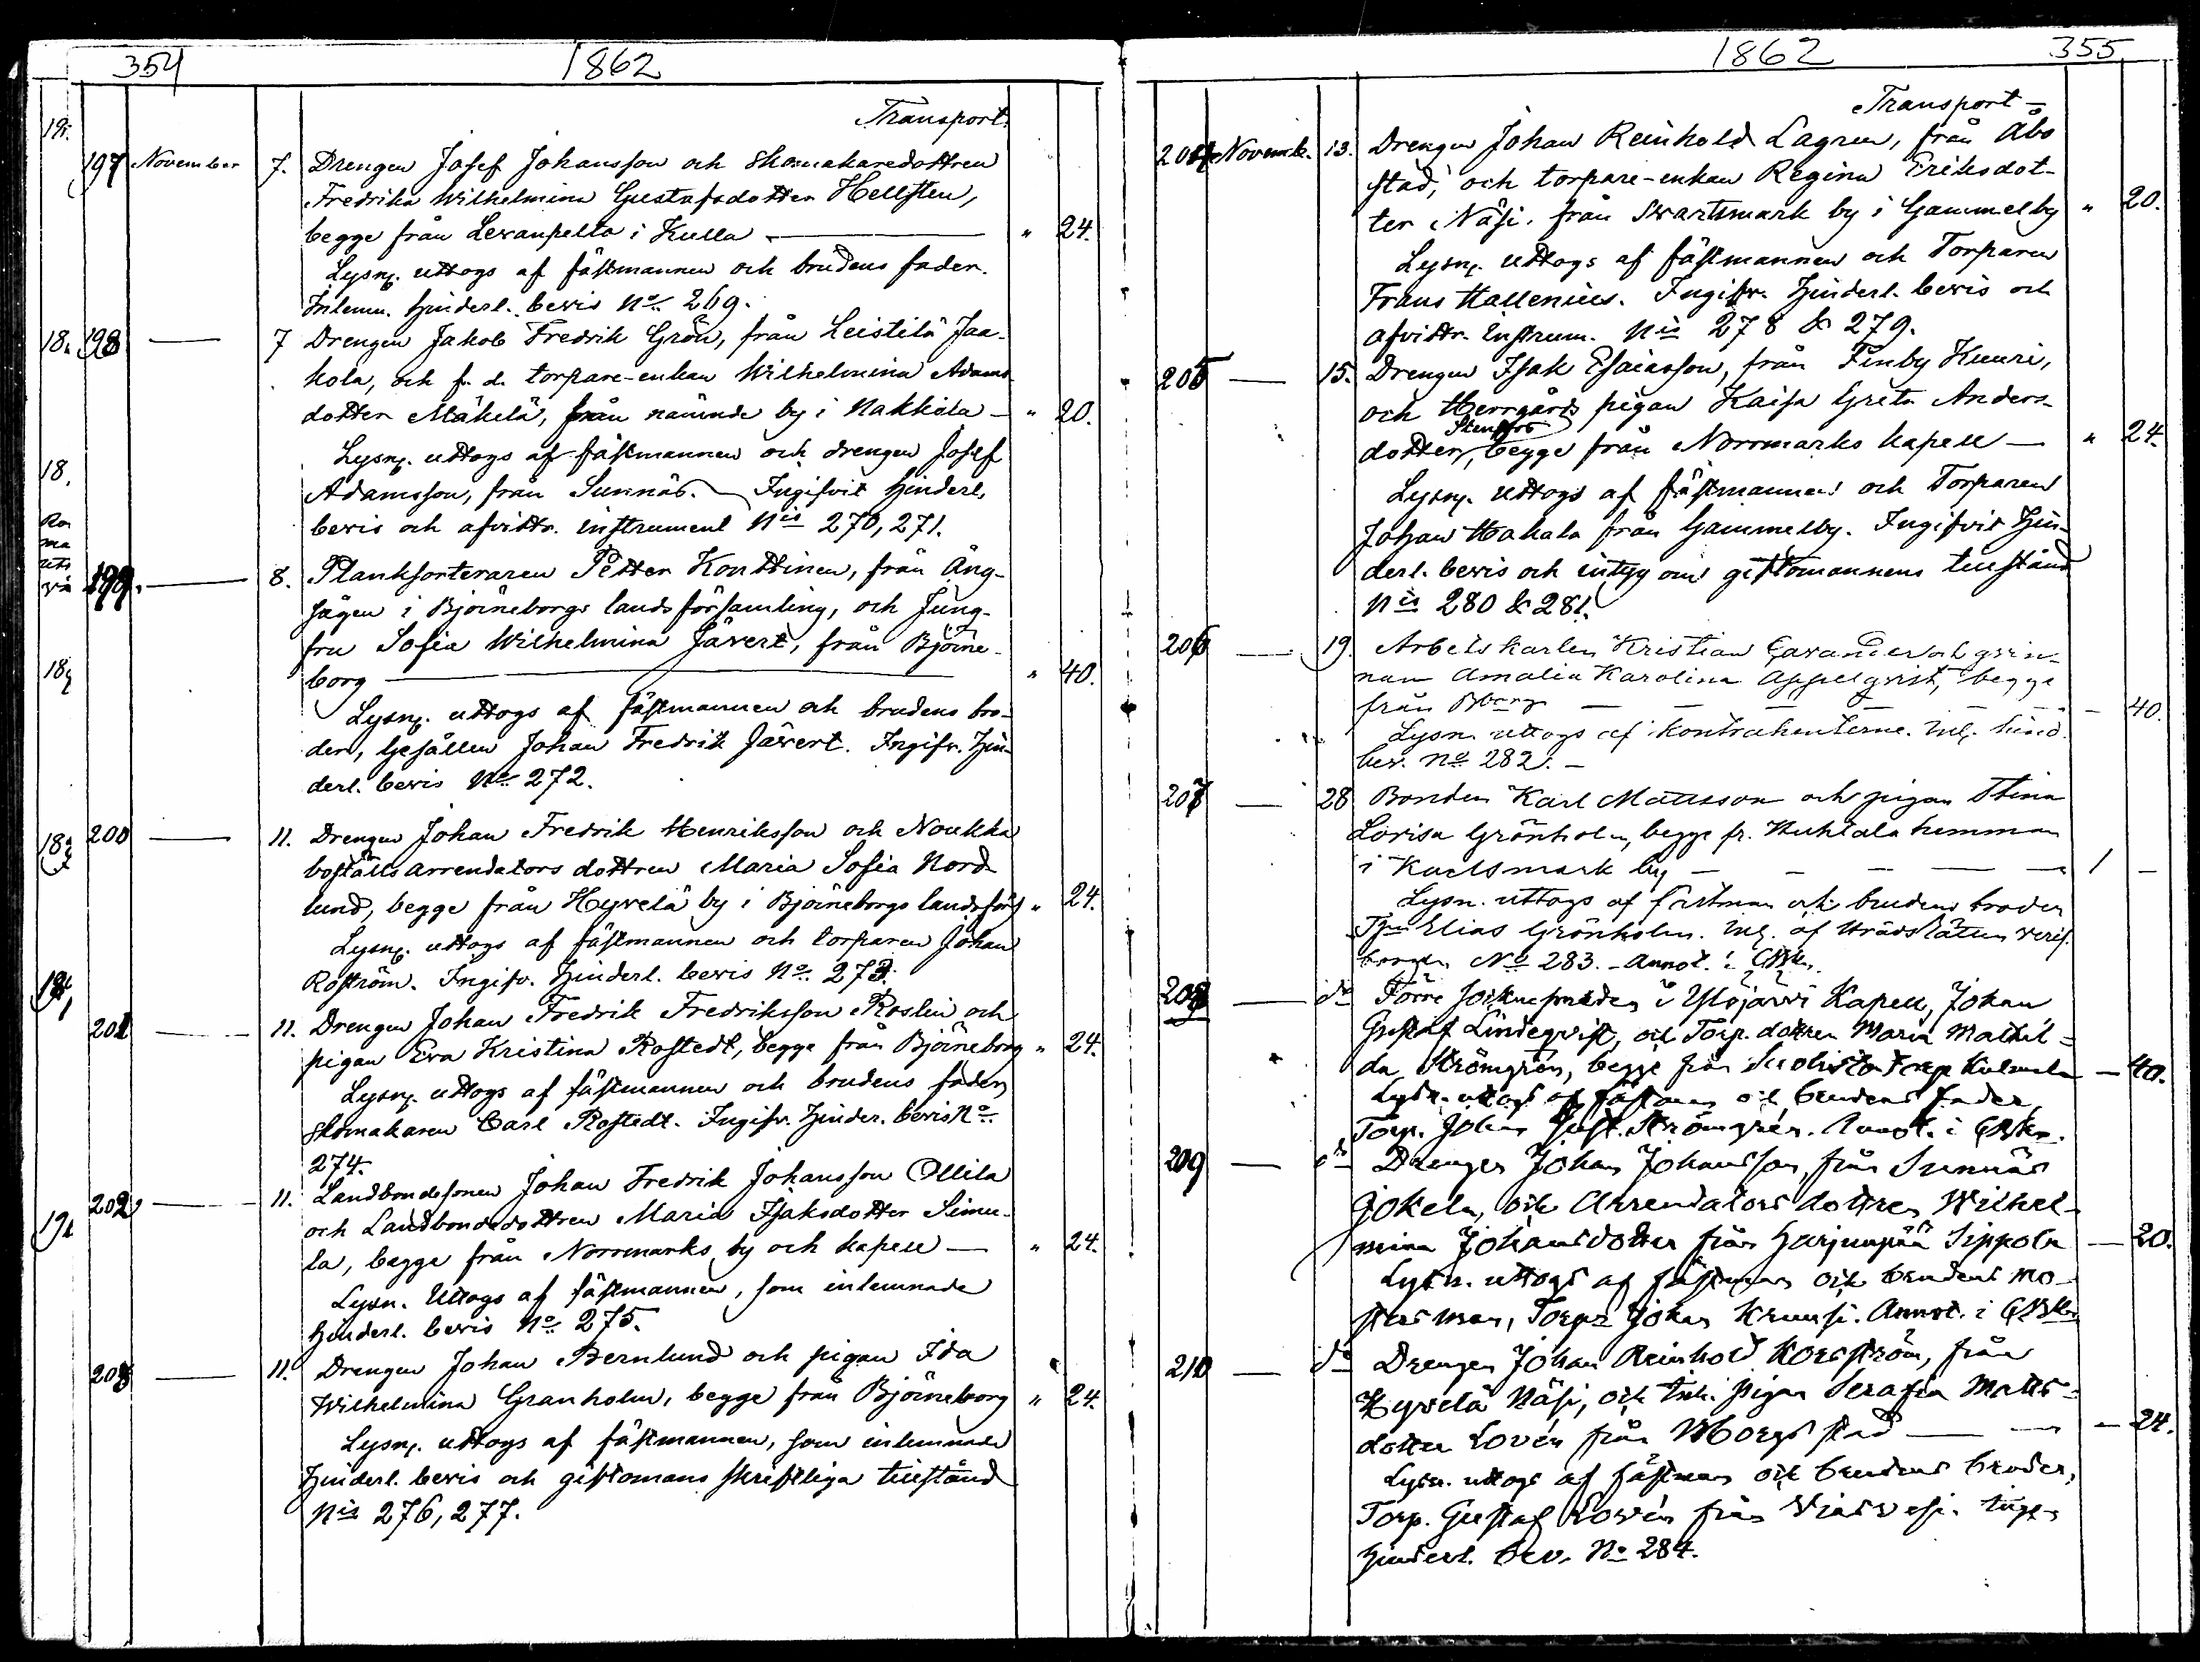 354 1862
Transport.
197 November 7. Drengen Josef Johansson och Skomakaredottren
Fredrika Wilhelmina Gustafsdotter Hellsten,
begge från Levanpelto i Kulla — " 24.
Lysng. uttogs af fästmannen och brudens fader.
Inlemn. hinderl. bevis No 269.
198 — 7 Drengen Jakob Fredrik Grön, från Leistilä Jaa-
kola, och f. d. torpare-enkan Wilhelmina Adams-
dotter Mäkelä, från nämnde by i Nakkila — " 20.
Lysng. uttogs af fästmannen och drengen Josef
Adamsson, från Sunnäs. Ingifvit hinderl.
bevis och afvittr. instrument Nis 270, 271.
199. — 8. Planksorteraren Petter Konttinen, från Ång-
sågen i Björneborgs landsförsamling, och Jung-
fru Sofia Wilhelmina Jävert, från Björne-
borg — " 40.
Lysng. uttogs af fästmannen och brudens bro-
der, Gesällen Johan Fredrik Jävert. Ingifv. Hin-
derl. bevis No 272.
200 — 11. Drengen Johan Fredrik Henriksson och Noukka
boställs arrendators dottren Maria Sofia Nord-
lund, begge från Hyvelä by i Björneborgs landsförs. " 24.
Lysng. uttogs af fästmannen och torparen Johan
Roström. Ingifv. Hinderl. bevis No 273.
201 — 11. Drengen Johan Fredrik Fredriksson Roslin och
pigan Eva Kristina Rostedt, begge från Björneborg " 24.
Lysng. uttogs af fästmannen och brudens fader,
Skomakaren Carl Rostedt. Ingifv. Hinder. bevis No
274.
202 — 11. Landbondesonen Johan Fredrik Johansson Ollila
och Landbondedottren Maria Isaksdotter Simu-
la, begge från Norrmarks by och kapell — " 24.
Lysn. Uttogs af fästmannen, som inlemnade
hinderl. bevis No 275.
203 — 11. Drengen Johan Bernlund och pigan Ida
Wilhelmina Granholm, begge från Björneborg " 24.
Lysng. uttogs af fästmannen, som inlemnade
Hinderl. bevis och giftomans skriftliga tillstånd
Nis 276, 277.
1862 355
Transport —
204 Novemb. 13. Drengen Johan Reinhold Lagren, från Åbo
stad, och torpare-enkan Regina Eriksdot-
ter Näsi, från Svartsmark by i Gammelby " 20.
Lysng. uttogs af fästmannen och Torparen
Frans Hallenius. Ingifvr. Hinderl. bevis och
afvittr. Instrum. Nis 278 & 279.
205 — 15. Drengen Isak Esaiasson, från Finby Kuuri,
och Herrgårds pigan Kaisa Greta Anders-
dotter Stenfors, begge från Norrmarks kapell — " 24.
Lysng. uttogs af fästmannen och Torparen
Johan Hakala från Gammelby. Ingifvit Hin-
derl. bevis och intyg om giftomannens tillstånd
Nis 280 & 281.
206 — 19. Arbetskarlen Kristian Cavander och qvin-
nan Amalia Karolina Appelqvist, begge
från Bborg — 40.
Lysn. uttogs af kontrahenterne. Inl. hind.
bev. No 282. —
207 — 28 Bonden Karl Mattsson och pigan Stina
Lovisa Grönholm, begge fr. Huhtala hemman
i Karlsmark by — 1 —
Lysn. uttogs af fästman och brudens broder
Elias Grönholm. Inl. af Häradsrätten verif.
borgen No 283. — Annot. i
208 — do Förre Socknesmeden i Ylöjärvi Kapell, Johan
Gustaf Lindeqvist, och Torp. dottren Maria Mathil-
da Strömgrén, begge från torp — 40.
Lysn. uttogs af fästman och brudens fader,
Torp. Johan Gust. Strömgrén. Annot. i
209 — do Drengen Johan Johansson, från Sunnäs
Jokela, och Arrendators dottren Wilhel-
mina Johansdotter från Harjunpää Sippola — 20.
Lysn. uttogs af fästman och brudens mo-
sters man, Torpr Johan Kruusi. Annot. i
210 — do Drengen Johan Reinhold Korsström, från
Hyvelä Näsi, och pigan Serafia Matts-
dotter Lovén från Bborgs stad — 24.
Lysn. uttogs af fästman och brudens broder,
Torp. Gustaf Lovén från Viasvesi. Ingaf
hinderl. bev. No 284.